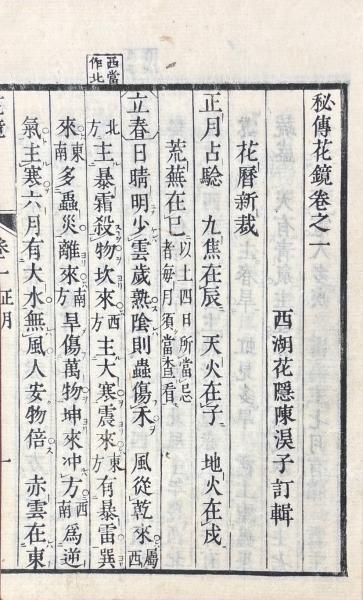 西當作北
秘傳花鏡卷之一
西湖花隱陳淏子訂輯
花曆新裁
正月占驗 九焦在辰 天火在子 地火在戌
荒蕪在巳 以上四日所當忌者每月須當查看
立春日晴明少雲歲熟陰則蟲傷禾 風從乾來屬西
北方主暴霜殺物坎來西方主大寒震來東方有暴雷巽
來東南多蟲災離來南方旱傷萬物坤來西南冲方爲逆
氣主寒六月有大水無風人安物倍 赤雲在東
卷一 正月 一